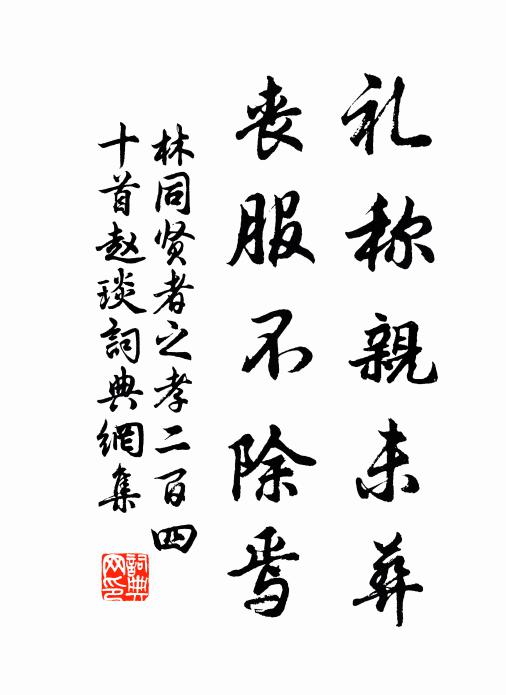 礼称親未葬
丧服不除焉
林同贤者之孝二百四
十首赵琰詞典網集
詞典
网印